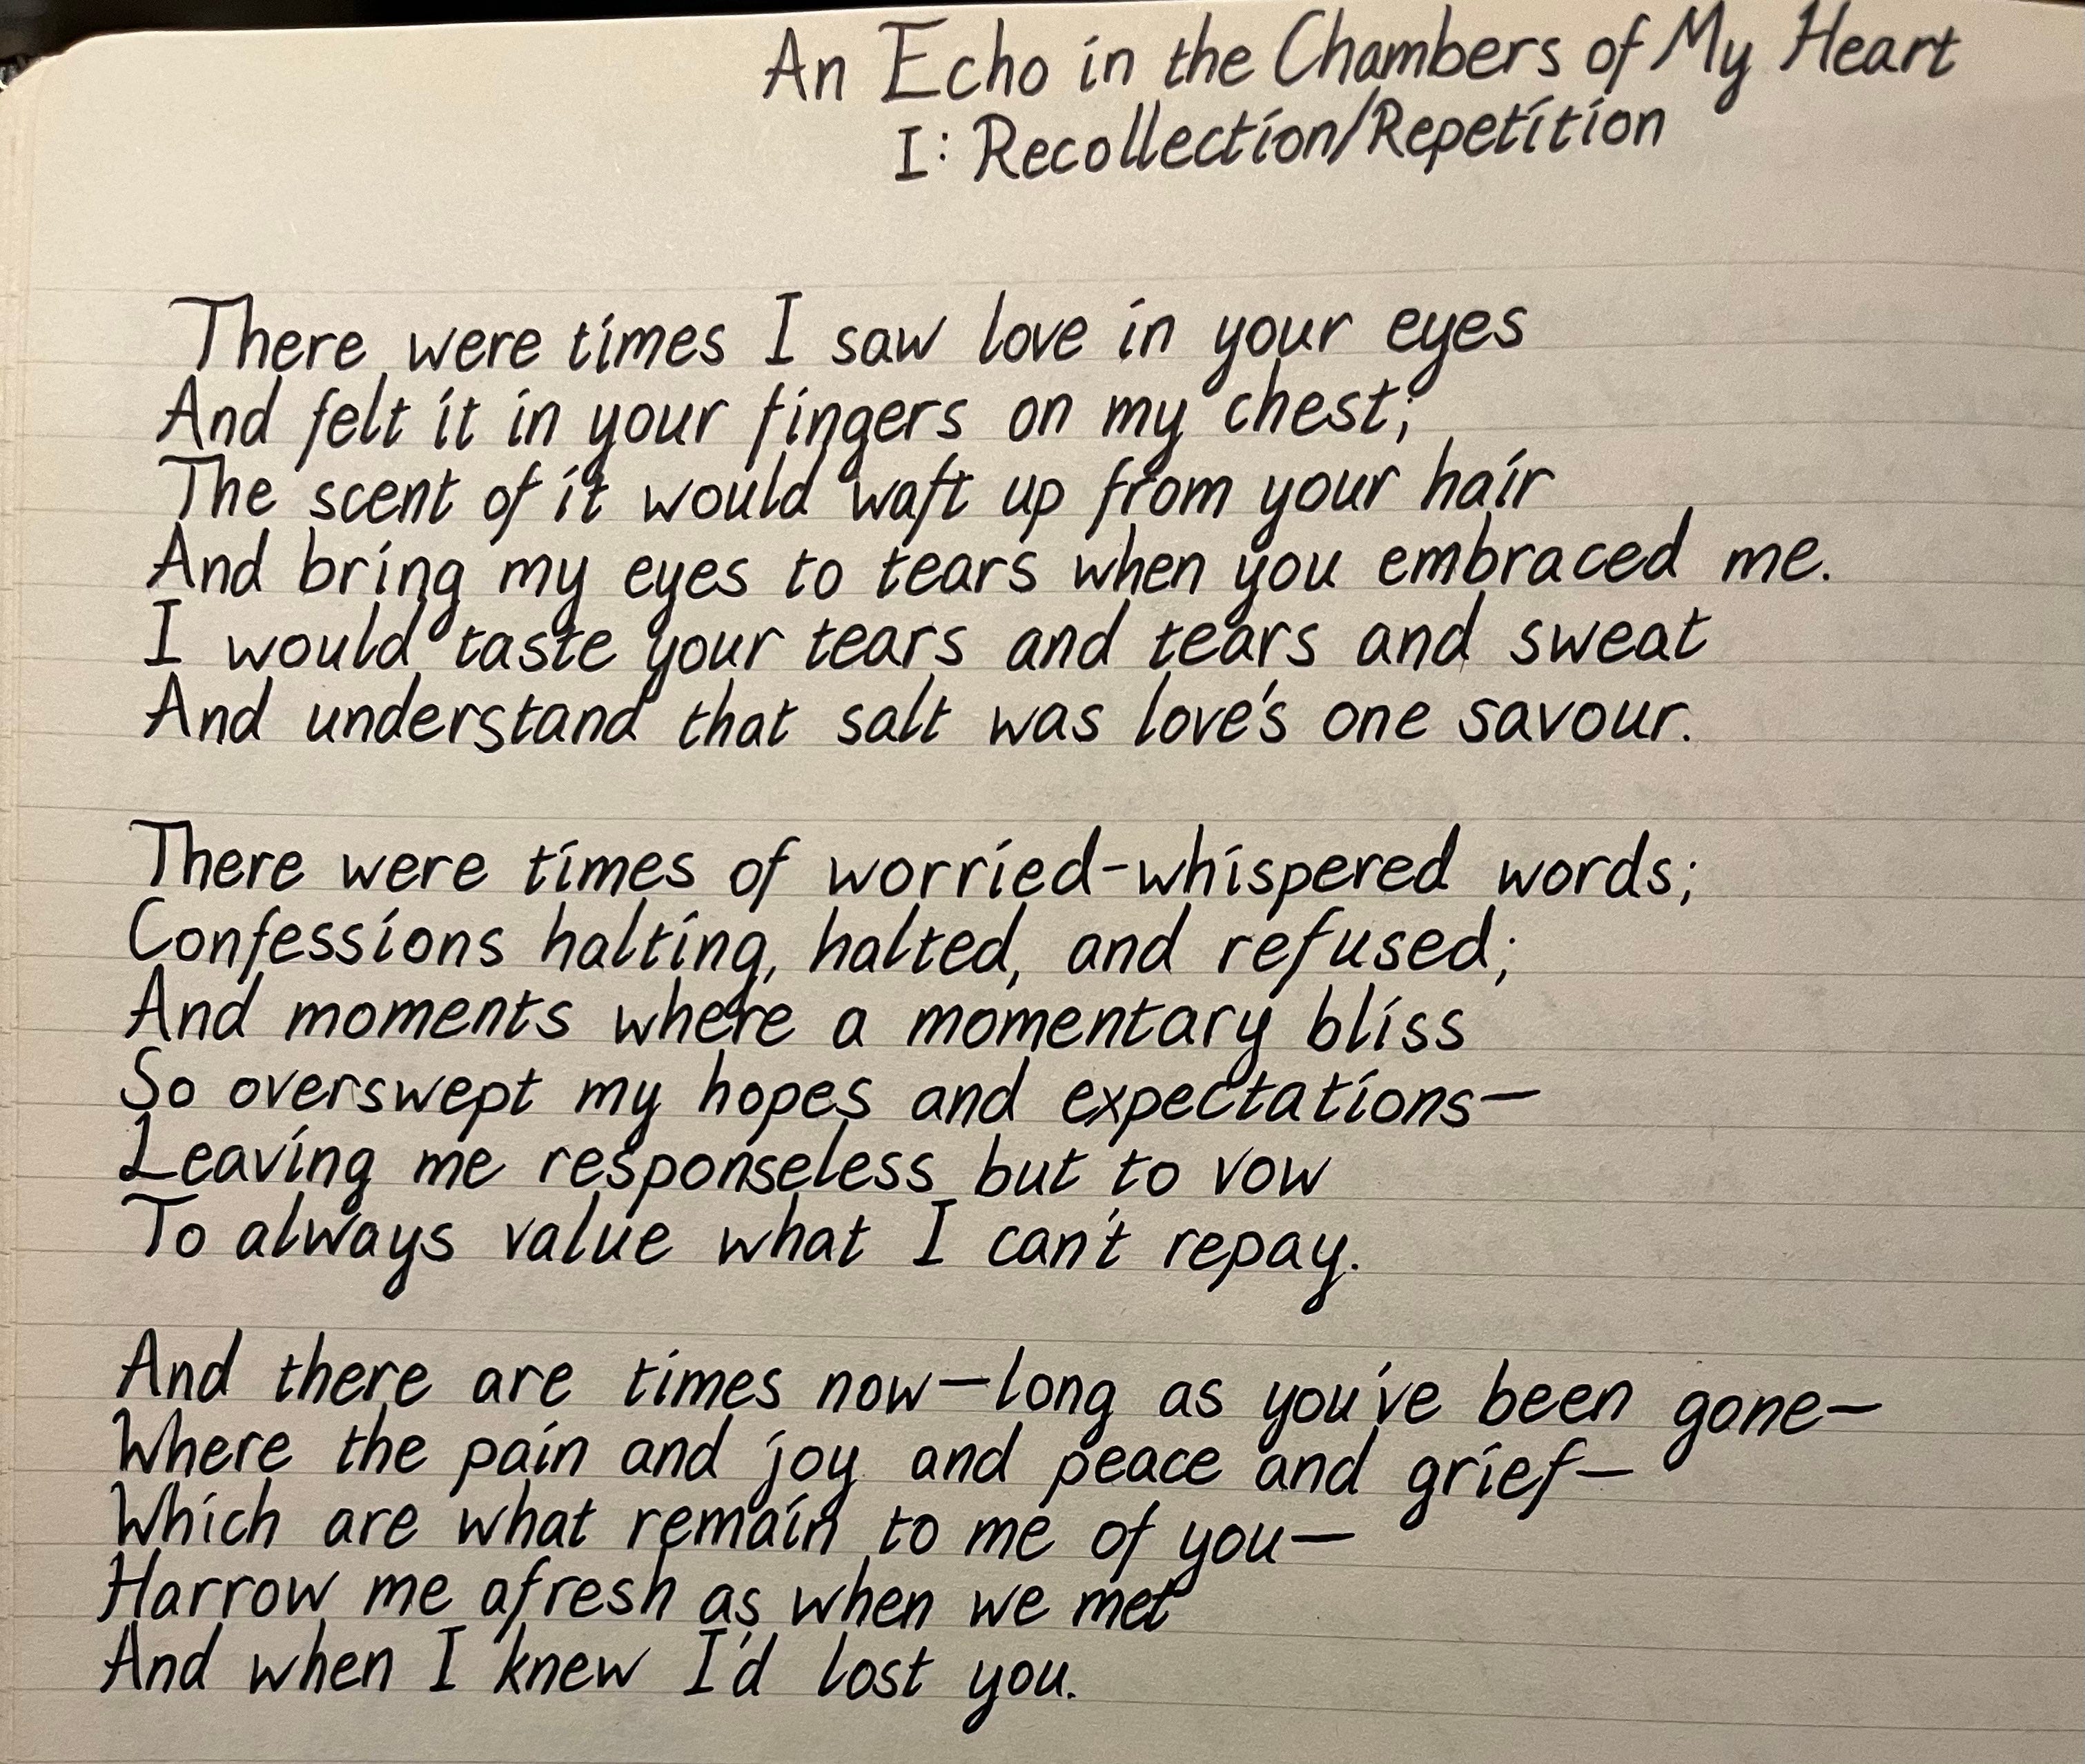 An Echo in the Chambers of My Heart
I: Recollection/Repetition
There were times I saw love in your eyes
And felt it in your fingers on my chest;
The scent of it would waft up from your hair
And bring my eyes to tears when you embraced me.
I would taste your tears and tears and sweat
And understand that salt was love's one savour.
There were times of worried-whispered words;
Confessions halting, halted, and refused;
And moments where a momentary bliss
So overswept my hopes and expectations—
Leaving me responseless but to vow
To always value what I can't repay.
And there are times now—long as you've been gone—
Where the pain and joy and peace and grief—
Which are what remain to me of you—
Harrow me afresh as when we met
And when I knew I'd lost you.